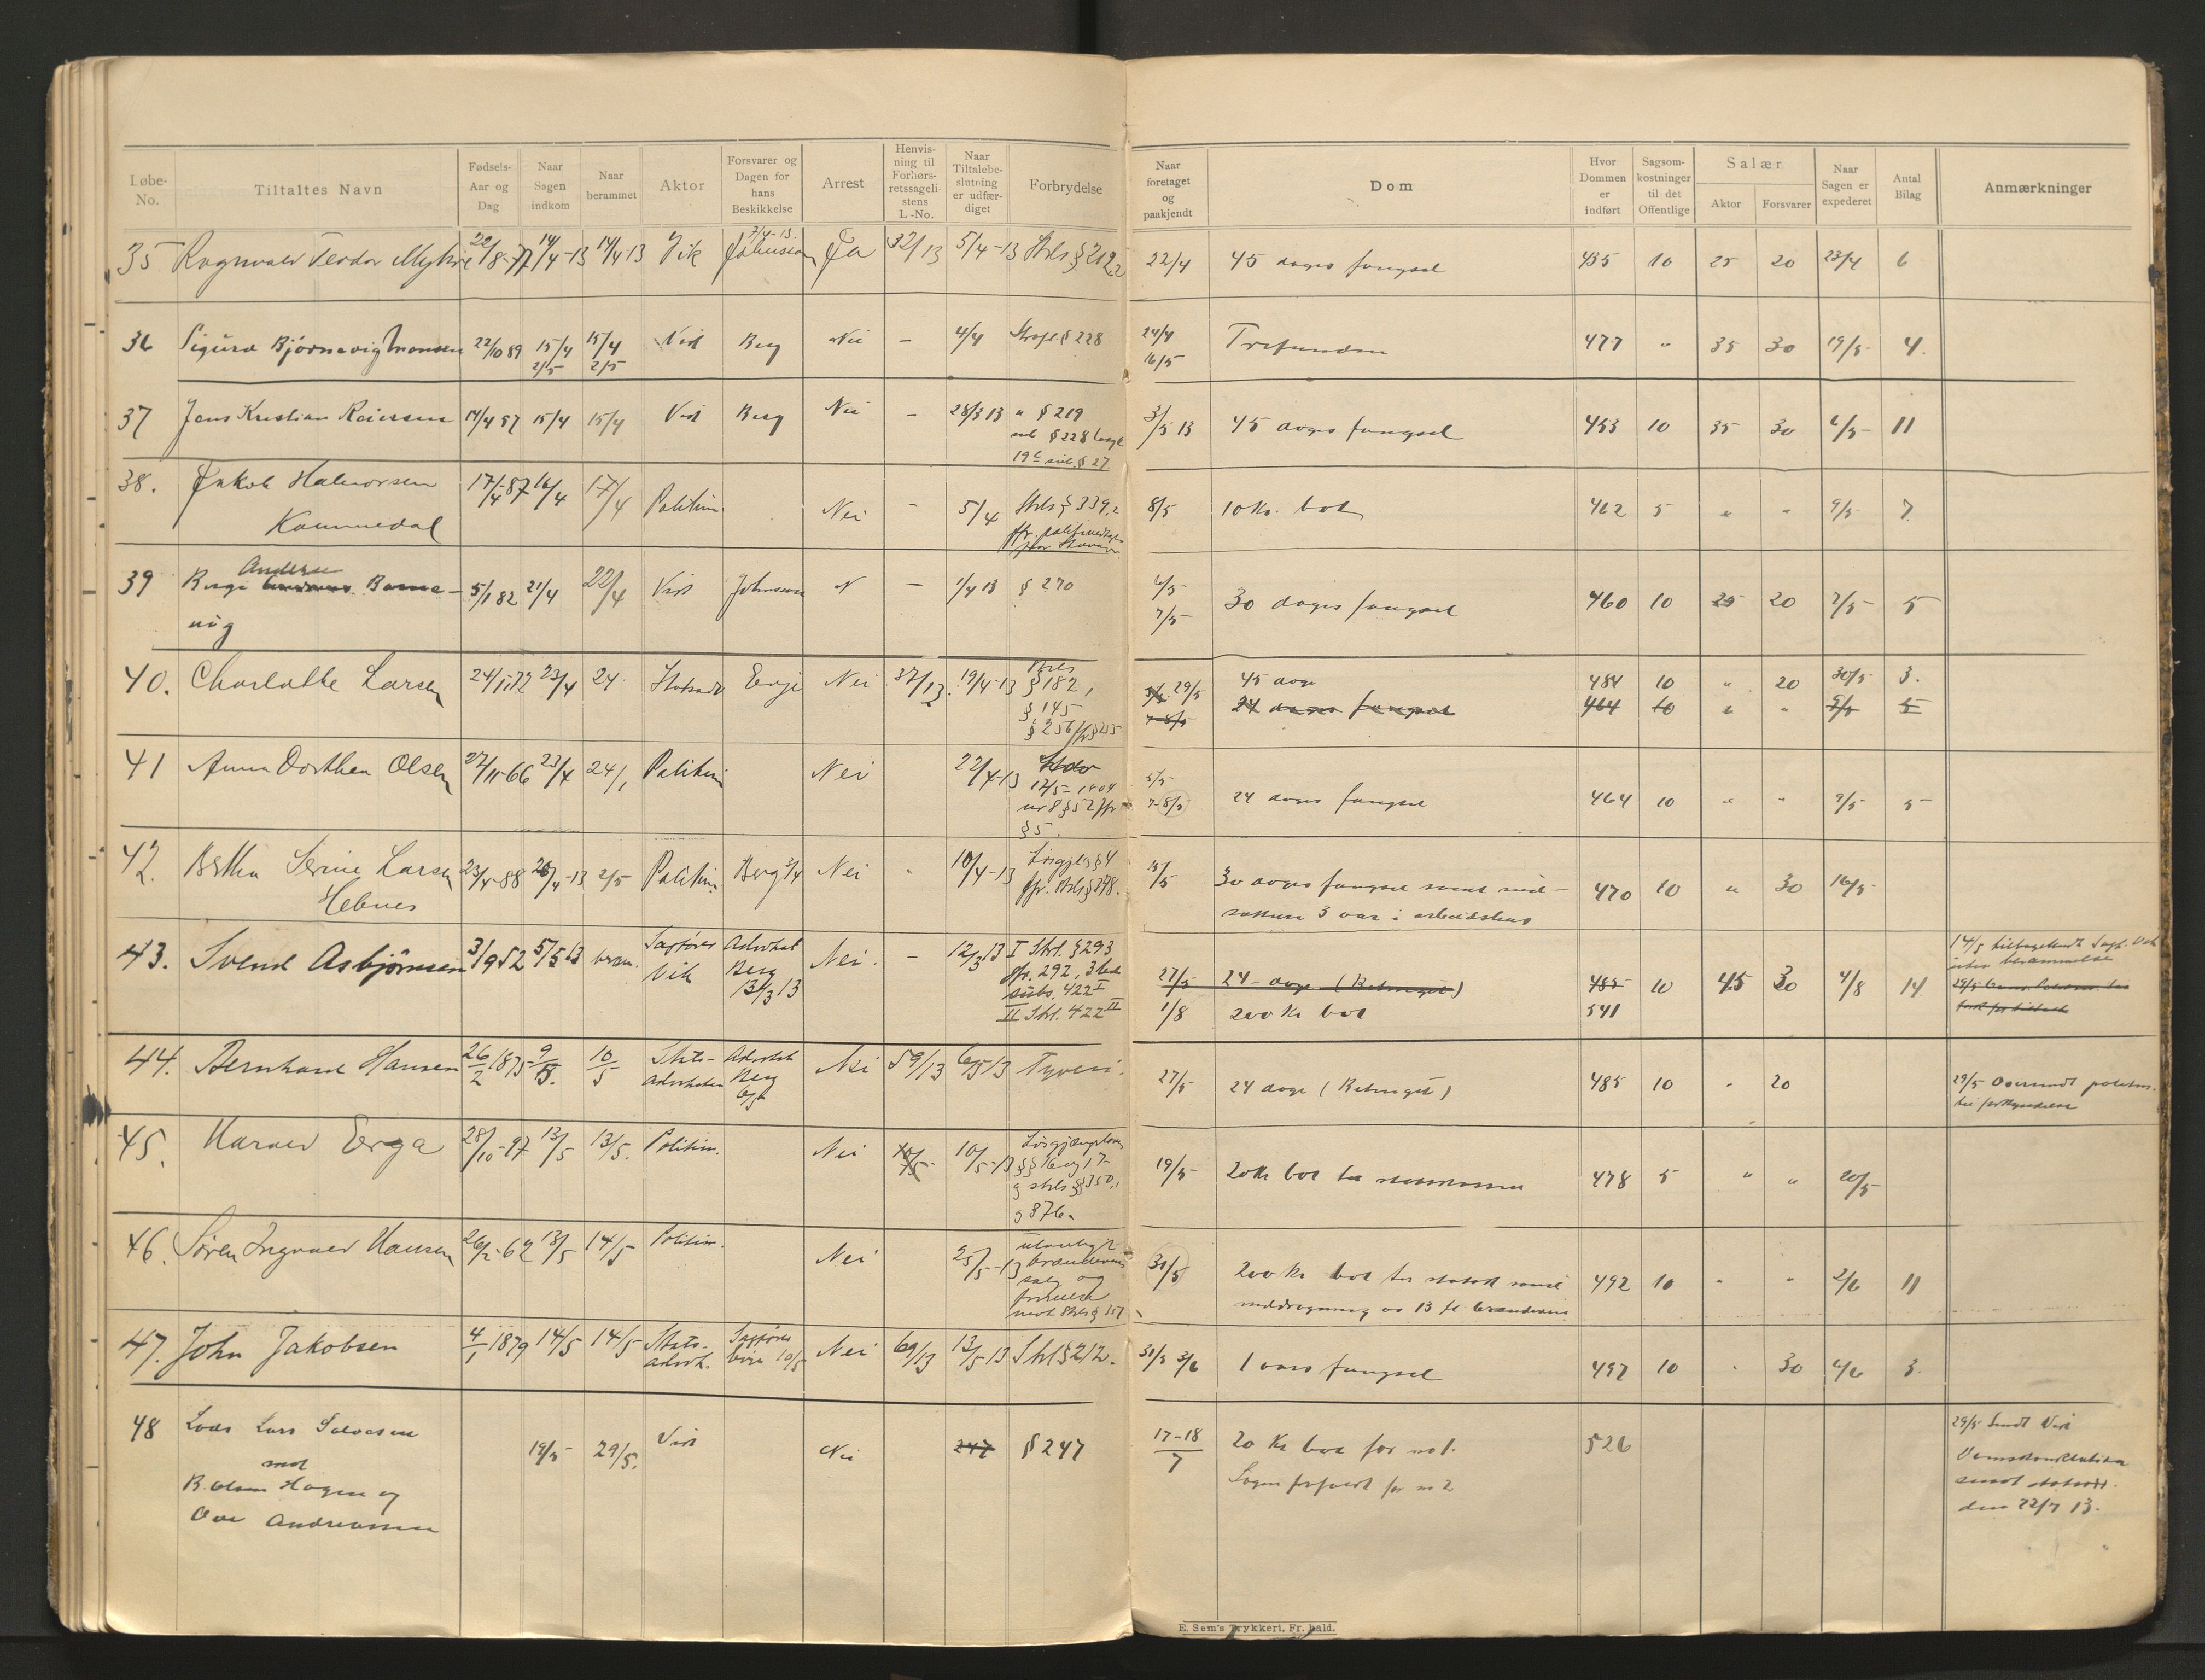 Løbe-No. Tiltaltes Navn Fødsels-Aar og Dag Naar Sagen indkom Naar berammet Aktor Forsvarer og Dagen for hans Beskikkelse Arrest Henvis-ning til Forhørs-retssageli-stens L.-No. Naar Tiltalebe-slutning er udfær-diget Forbrydelse Naar foretaget og paakjendt Dom Hvor Dommen er indført Sagsom-kostninger til det Offentlige Salær Aktor Forsvarer Naar Sagen er expederet Antal Bilag Anmærkninger
7/4-13.
35 Ragnvald Teodor Myhre 22/8-77 14/4-13 14/4-13 Vik Johnsen Ja 32/13 5/4-13 Strls § 212,2 22/4 45 dages fængsel 435 10 25 20 23/4 6
36 Sigurd Bjørnevig Monsen 22/10 89 15/4 15/4 Vik Berg Nei – 4/4 Strafl. § 228 24/4 Trifunden 477 " 35 30 19/5 4.
2/5 2/5 16/5
37 Jens Kristian Reiersen 14/4 57 15/4 15/4 Vik Berg Nei – 28/3 13 " § 219 3/5 13 45 dages fængsel 453 10 35 30 6/5 11
§ 228
§ 27
38. Jakob Halvorsen 17/4-87 16/4 17/4 Politim. Nei – 5/4 Strls § 339,2 8/5 10 Kr. bot 462 5 " " 9/5 7
Kommedal
Andersen
39 5/1 82 21/4 22/4 Vik Johnsen N – 1/4 13 § 270 6/5 30 dages fængsel 460 10 25 20 7/5 5
vig 7/5
40. Charlotte Larsen 24/1 72 23/4 24 Statsadv Erga Nei 37/13. 19/4-13 Strls § 182, 29/5 45 dage 484 10 " 20 30/5 3.
§ 145 24 dages fængsel 464 10 " " 9/5 5
§ 256 jfr § 255
41 Anna Dorthea Olsen 27/11-66 23/4 24/1 Politim Nei 22/4-13 5/5
17/5-1904 7-8/5 24 dages fængsel 464 10 " " 9/5 5
nr 8 § 52 jfr
§ 5.
42. Bertha Serine Larsen 23/4-88 26/4-13 2/5 Politim. Berg 3/4 Nei " 10/4-13 Løsgjl § 4 15/5 30 dages fængsel samt ind- 470 10 " 30 16/5
Hebnes jfr. Strls § 248. sættes 3 aar i arbeidshus
43. Svend Asbjørnsen 3/9 52 5/5 13 beram. Sagfører Vik Advokat Berg 13/3 13 Nei. – 12/3 13 I Strl. § 293 27/5 24 dage (Betinget) 485 10 45 30 4/8 14 14/5 tilbagesendt Sagf. Vik
jfr. 292, 3 led uden berammelse
subs. 422 I
II Strl. 422 II 1/8 200 Kr bot 541
44. Bernhard Hansen 26/2 1875 9/5. 10/5 Stats-advokaten Advokat Berg Nei 59/13 6/5 13 Tyveri. 27/5 24 dage (Betinget) 485 10 " 20 29/5 Oversendt politim.
til forkyndelse
45. Harald Erga 28/10-97 13/5 13/5. Politim. Nei 10/5-13 Løsgjængerloven 19/5 20 Kr bot til statskassen 478 5 " " 20/5
§§ 16 og 17
og strls §§ 350,1
46. Søren Ingvald Hansen 26/2-62 13/5 14/5 Politim. Nei 25/5-13 ulovligt 31/5 200 Kr bot til statsk samt 492 10 " " 2/6 11
brændevins inddragning av 13 fl brændevin
salg og
mot Strls § 357
47. John Jakobsen 4/1 1879 14/5 14/5 Stats-advok. Sagfører 10/5 Nei 69/13 13/5-13 Strl § 212. 31/5 3/6 1 aars fængsel 497 10 " 30 4/6 3.
48 Lods Lars Salvesen 19/5 29/5. Vik Nei 247 § 247 17-18/7 20 Kr bot for no 1. 526 29/5 Sendt Vik
mot Sagen frafaldt for no 2 Domskonklusion
B. Olsen Hagen og sendt statsadv.
Ove Andreassen den 22/7 13.
E. Sem's Trykkeri, Fr. hald.